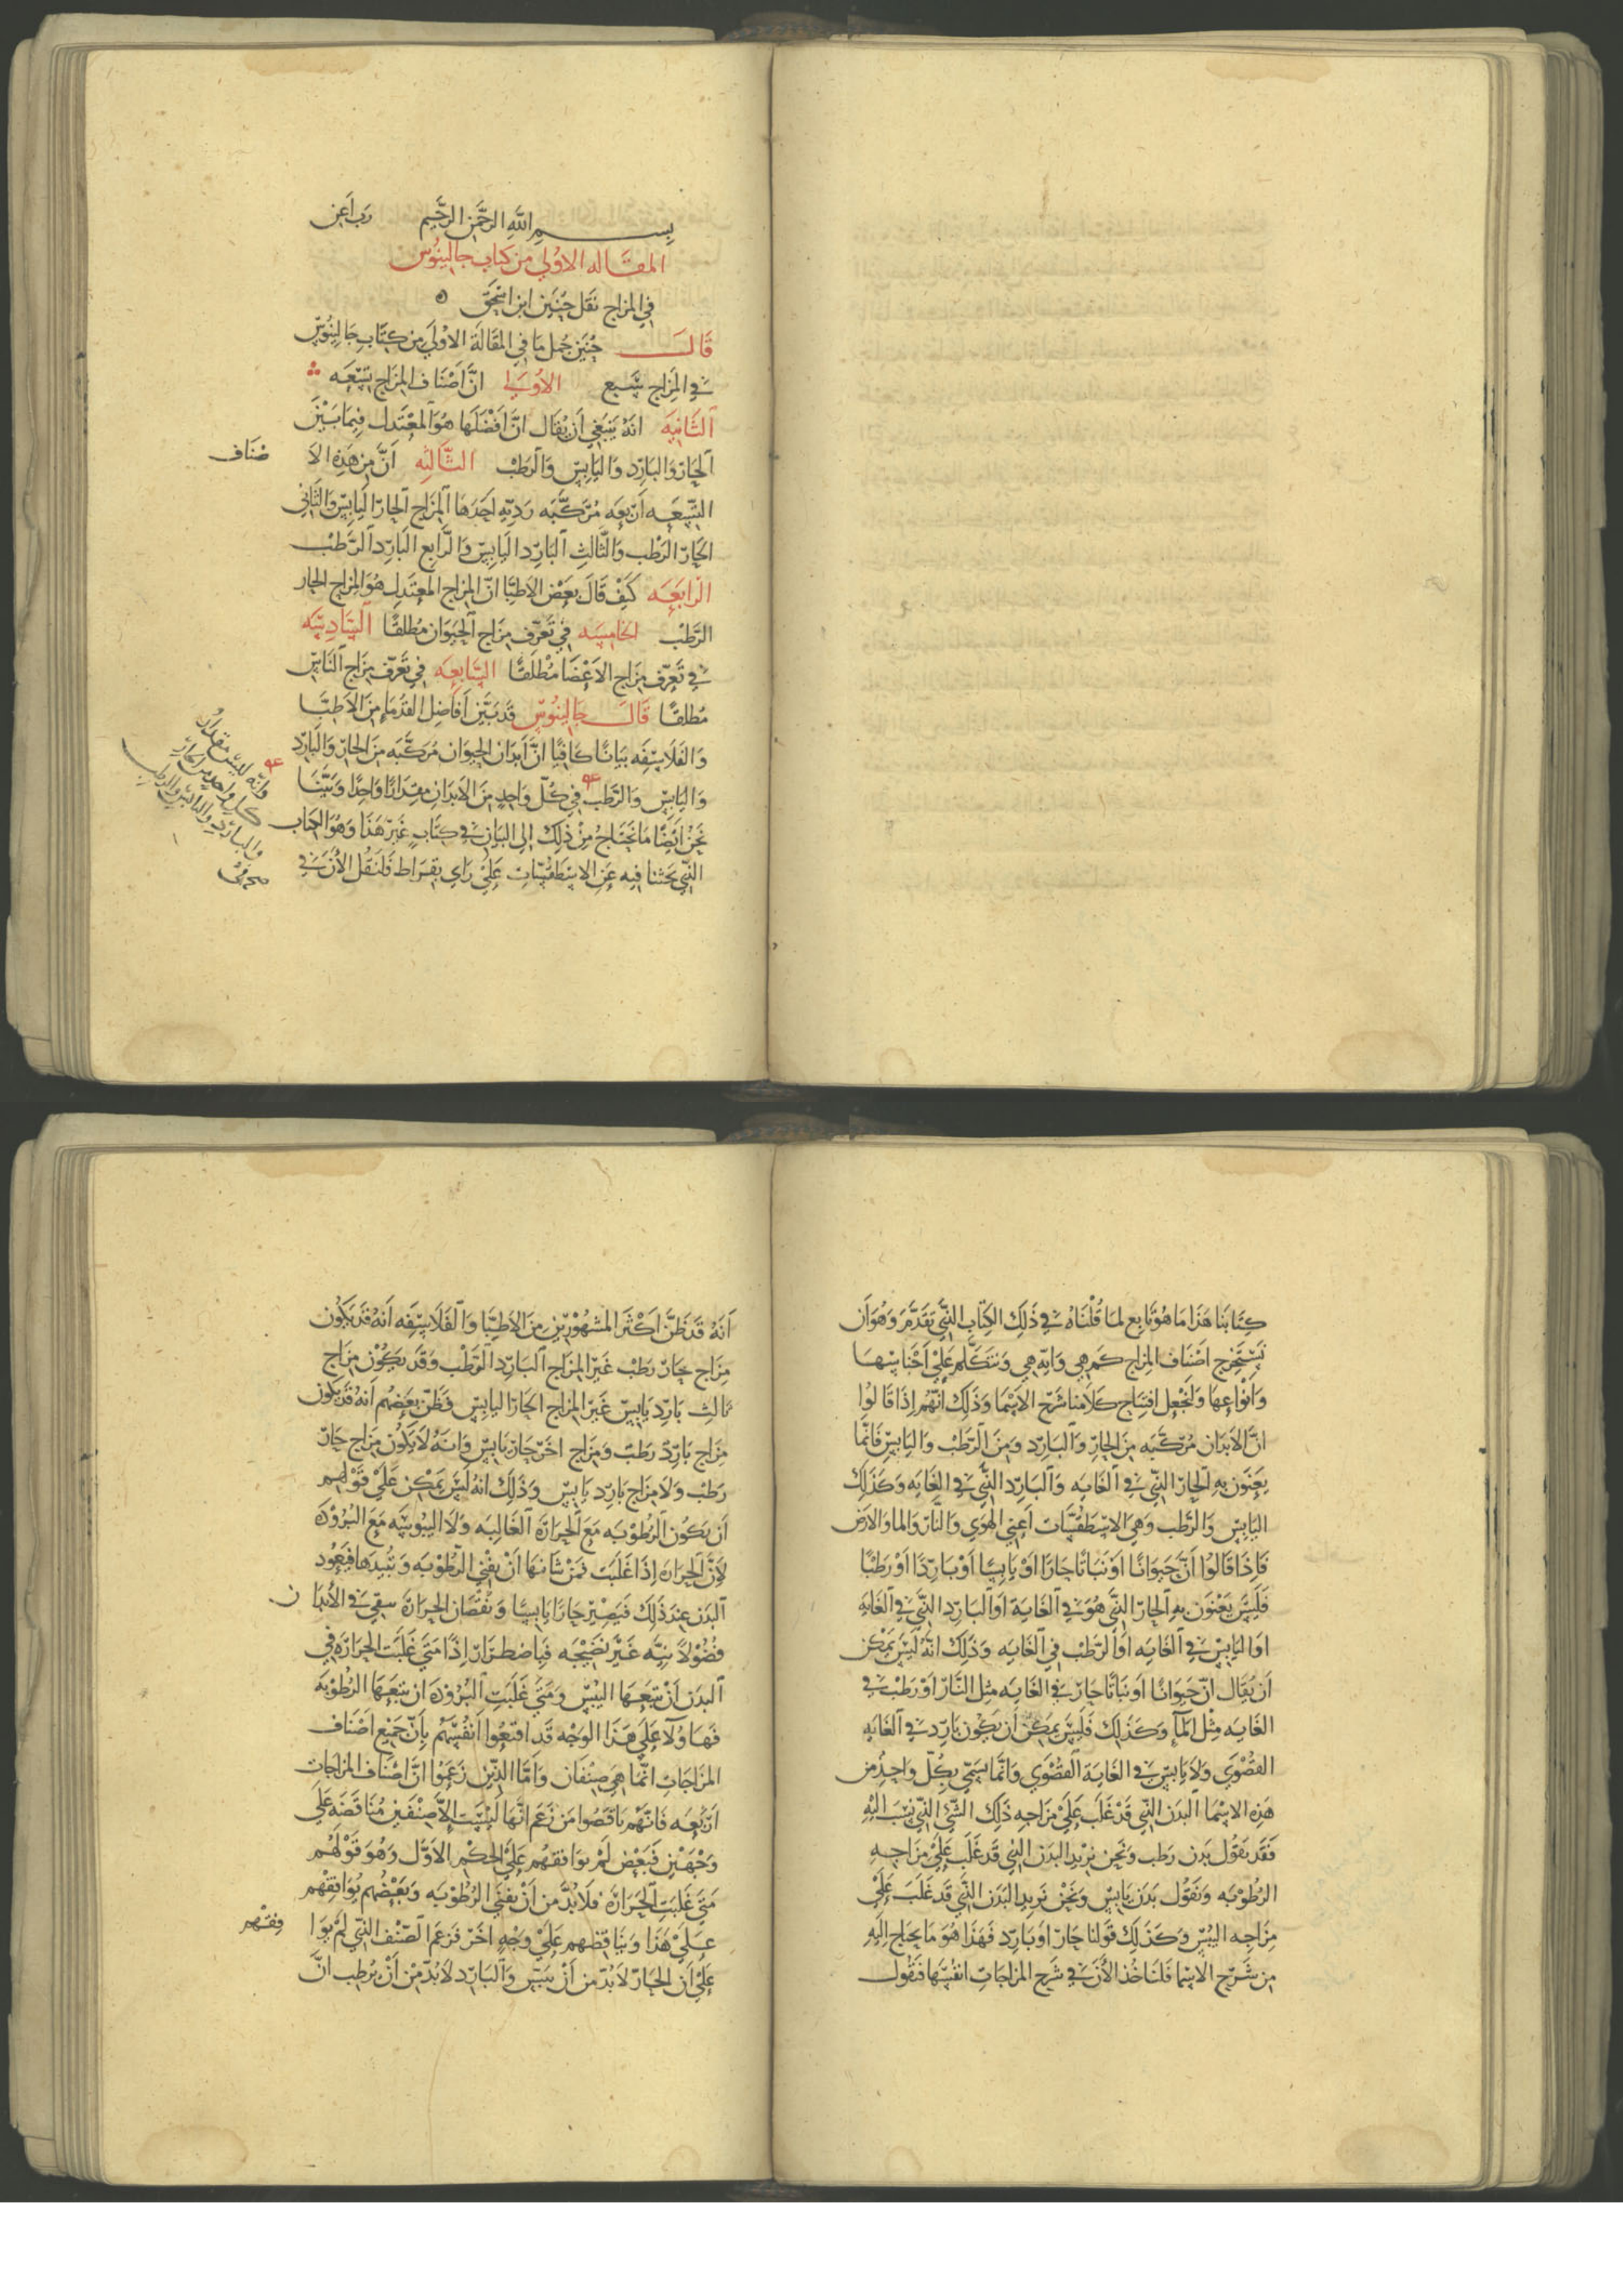 بسم الله الرحمن الرحيم رب اعن
المقاله الاولى من كتاب جالينوس
في المزاج نقل حنين ابن اسحق
قال حنين جمل ما في المقالة الاولى من كتاب جالينوس
في المزاج سبع الاولى ان اصناف المزاج تسعه
الثانيه انه ينبغي ان يقال ان افضلها هو المعتدل فيما بين
الحار والبارد واليابس والرطب الثالثه ان من هذه الا صناف
التسعه اربعه مركبه رديه احدها المزاج الحار اليابس والثاني
الحار الرطب والثالث البارد اليابس والرابع البارد الرطب
الرابعه كيف قال بعض الاطبا ان المزاج المعتدل هو المزاج الحار
الرطب الخامسه في تعرف مزاج الحيوان مطلقا السادسه
في تعرف مزاج الاعضا مطلقا السابعه في تعرف مزاج الناس
مطلقا قال جالينوس قد بين افاضل القدما من الاطبا
والفلاسفه بيانا كافيا ان ابدان الحيوان مركبه من الحار والبارد
واليابس والرطب في كل واحد من الابدان مقدارا واحدا وبينا
نحن ايضا ما نحتاج من ذلك الى البيان في كتاب غير هذا وهو الكتاب
الذي بحثنا فيه عن الاسطقسات على راي بقراط فلنقل الان في
وانه ليس مقدار
كل واحد من الحار
والبارد واليابس والرطب
كتابنا هذا ما هو تابع لما قلناه في ذلك الكتاب الذي تقدم وهو ان
نستخرج اصناف المزاج كم هي وايه هي ونتكلم على اجناسها
وانواعها ولنجعل افتتاح كلامنا شرح الاسما وذلك انهم اذا قالوا
ان الابدان مركبه من الحار والبارد ومن الرطب واليابس فانما
يعنون به الحار الذي في الغايه والبارد الذي في الغايه وكذلك
اليابس والرطب وهي الاسطقسات اعني الهوى والنار والما والارض
فاذا قالوا ان حيوانا او نباتا حارا او يابسا او باردا او رطبا
فليس يعنون به الحار الذي هو في الغاية او البارد الذي في الغايه
او اليابس في الغايه او الرطب في الغايه وذلك انه ليس يمكن
ان يقال ان حيوانا او نباتا حار في الغايه مثل النار او رطب في
الغايه مثل الما وكذلك فليس يمكن ان يكون بارد في الغايه
القصوى ولا يابس في الغاية القصوى وانما يسمى بكل واحد من
هذه الاسما البدن الذي قد غلب على مزاجه ذلك الشي الذي ينسب اليه
فقد نقول بدن رطب ونحن نريد البدن الذي قد غلب على مزاجه
الرطوبه ونقول بدن يابس ونحن نريد البدن الذي قد غلب على
مزاجه اليبس وكذلك قولنا حار او بارد فهذا هو ما يحتاج اليه
من شرح الاسما فلناخذ الان في شرح المزاجات انفسها فنقول
انه قد ظن اكثر المشهورين من الاطبا والفلاسفه انه قد يكون
مزاج حار رطب غير المزاج البارد الرطب وقد يكون مزاج
ثالث بارد يابس غير المزاج الحار اليابس فظن بعضهم انه قد يكون
مزاج بارد رطب ومزاج اخر حار يابس وانه لا يكون مزاج حار
رطب ولا مزاج بارد يابس وذلك انه ليس يمكن على قولهم
ان يكون الرطوبه مع الحرارة الغالبه ولا اليبوسه مع البرودة
لان الحرارة اذا غلبت فمن شانها ان يفني الرطوبه وتبيدها فيعود
البدن عند ذلك فيصير حارا يابسا ونقصان الحرارة يبقي في الابدا ن
فضولا نيه غير نضيجه فباضطرار اذا متى غلبت الحرارة في
البدن ان يتبعها اليبس ومتى غلبت البرودة ان يتبعها الرطوبه
فهاولا على هذا الوجه قد اقنعوا انفسهم بان جميع اصناف
المزاجات انما هي صنفان واما الذين زعموا ان اصناف المزاجات
اربعه فانهم ناقضوا من زعم انها ليست الا صنفين مناقضه على
وجهين فبعض لم يوافقهم على الحكم الاول وهو قولهم
متى غلبت الحرارة فلا بد من ان يفني الرطوبه وبعضهم يوافقهم
على هذا ويناقضهم على وجه اخر فزعم الصنف الذي لم يوا فقهم
على ان الحار لا بد من ان ييبس والبارد لا بد من ان يرطب ان